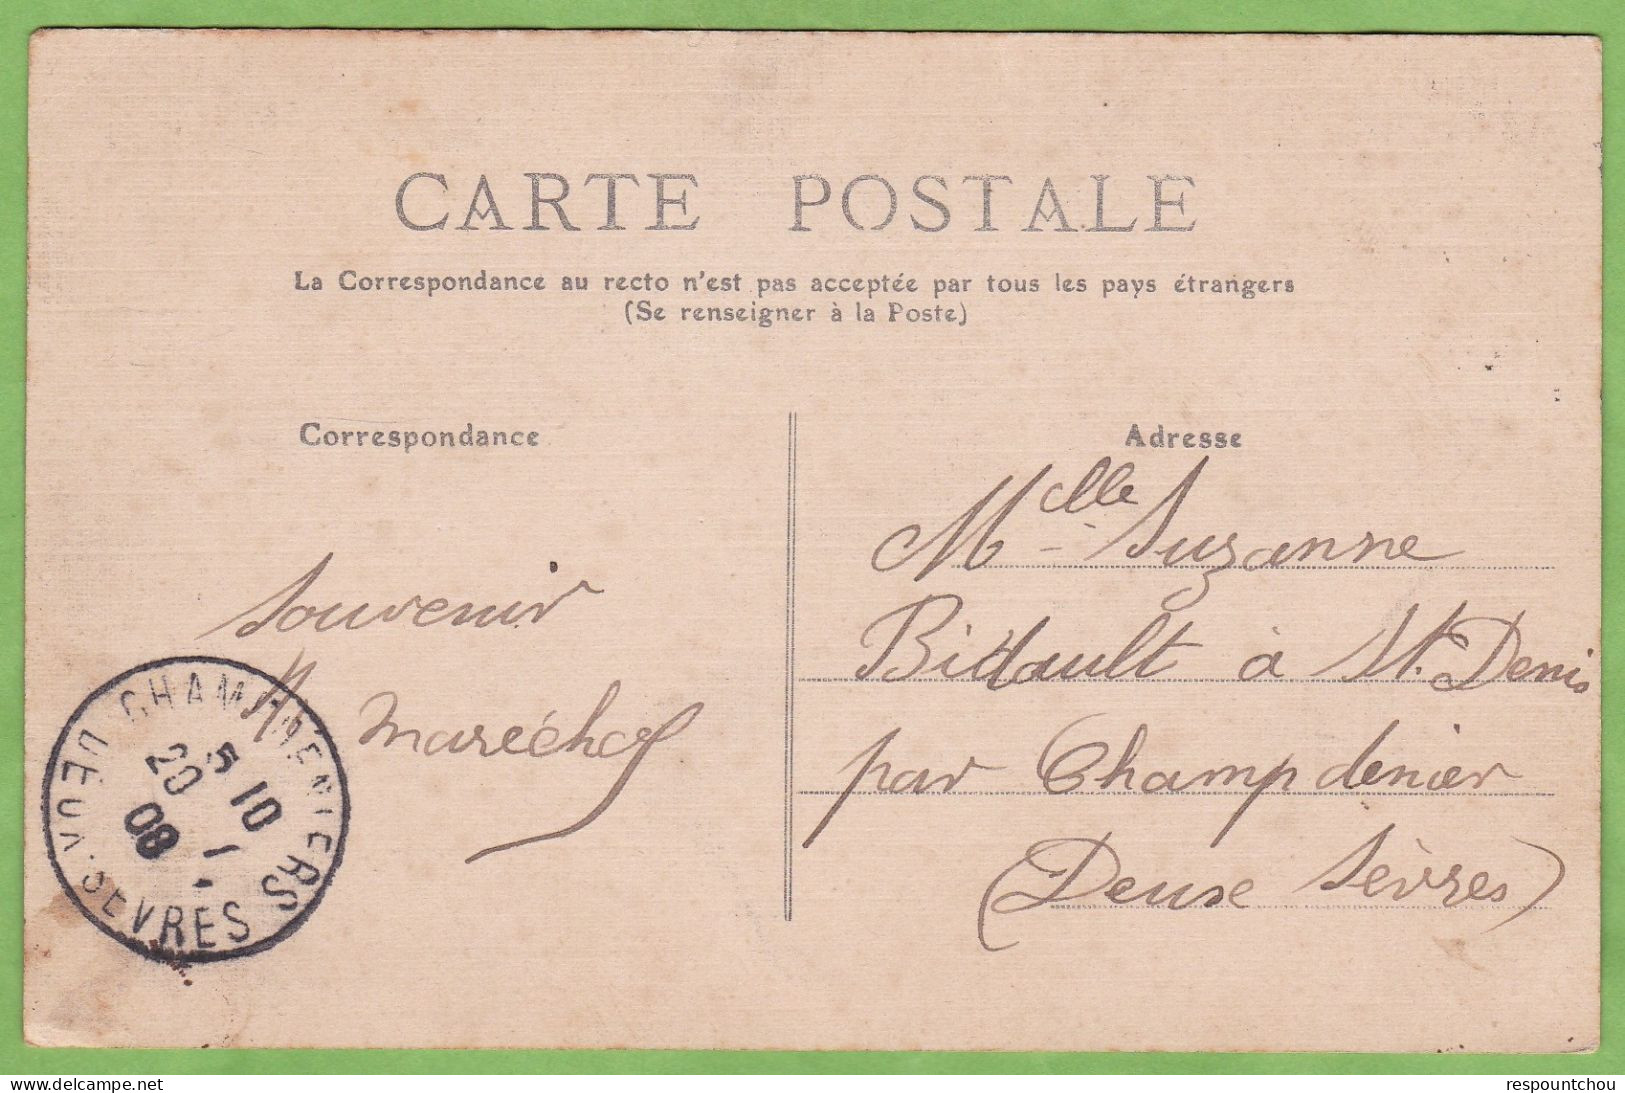 CARTE POSTALE
La Correspondance au recto n'est pas acceptée par tous les pays étrangers
(Se renseigner à la Poste)
Correspondance
souvenir
M maréchal
CHAMPDENIERS
5 10
20 - 1
08
DEUX-SEVRES
Adresse
Melle Suzanne
Bidault à St. Denis
par Champdenier
(Deuse Sèvres)
respountchou